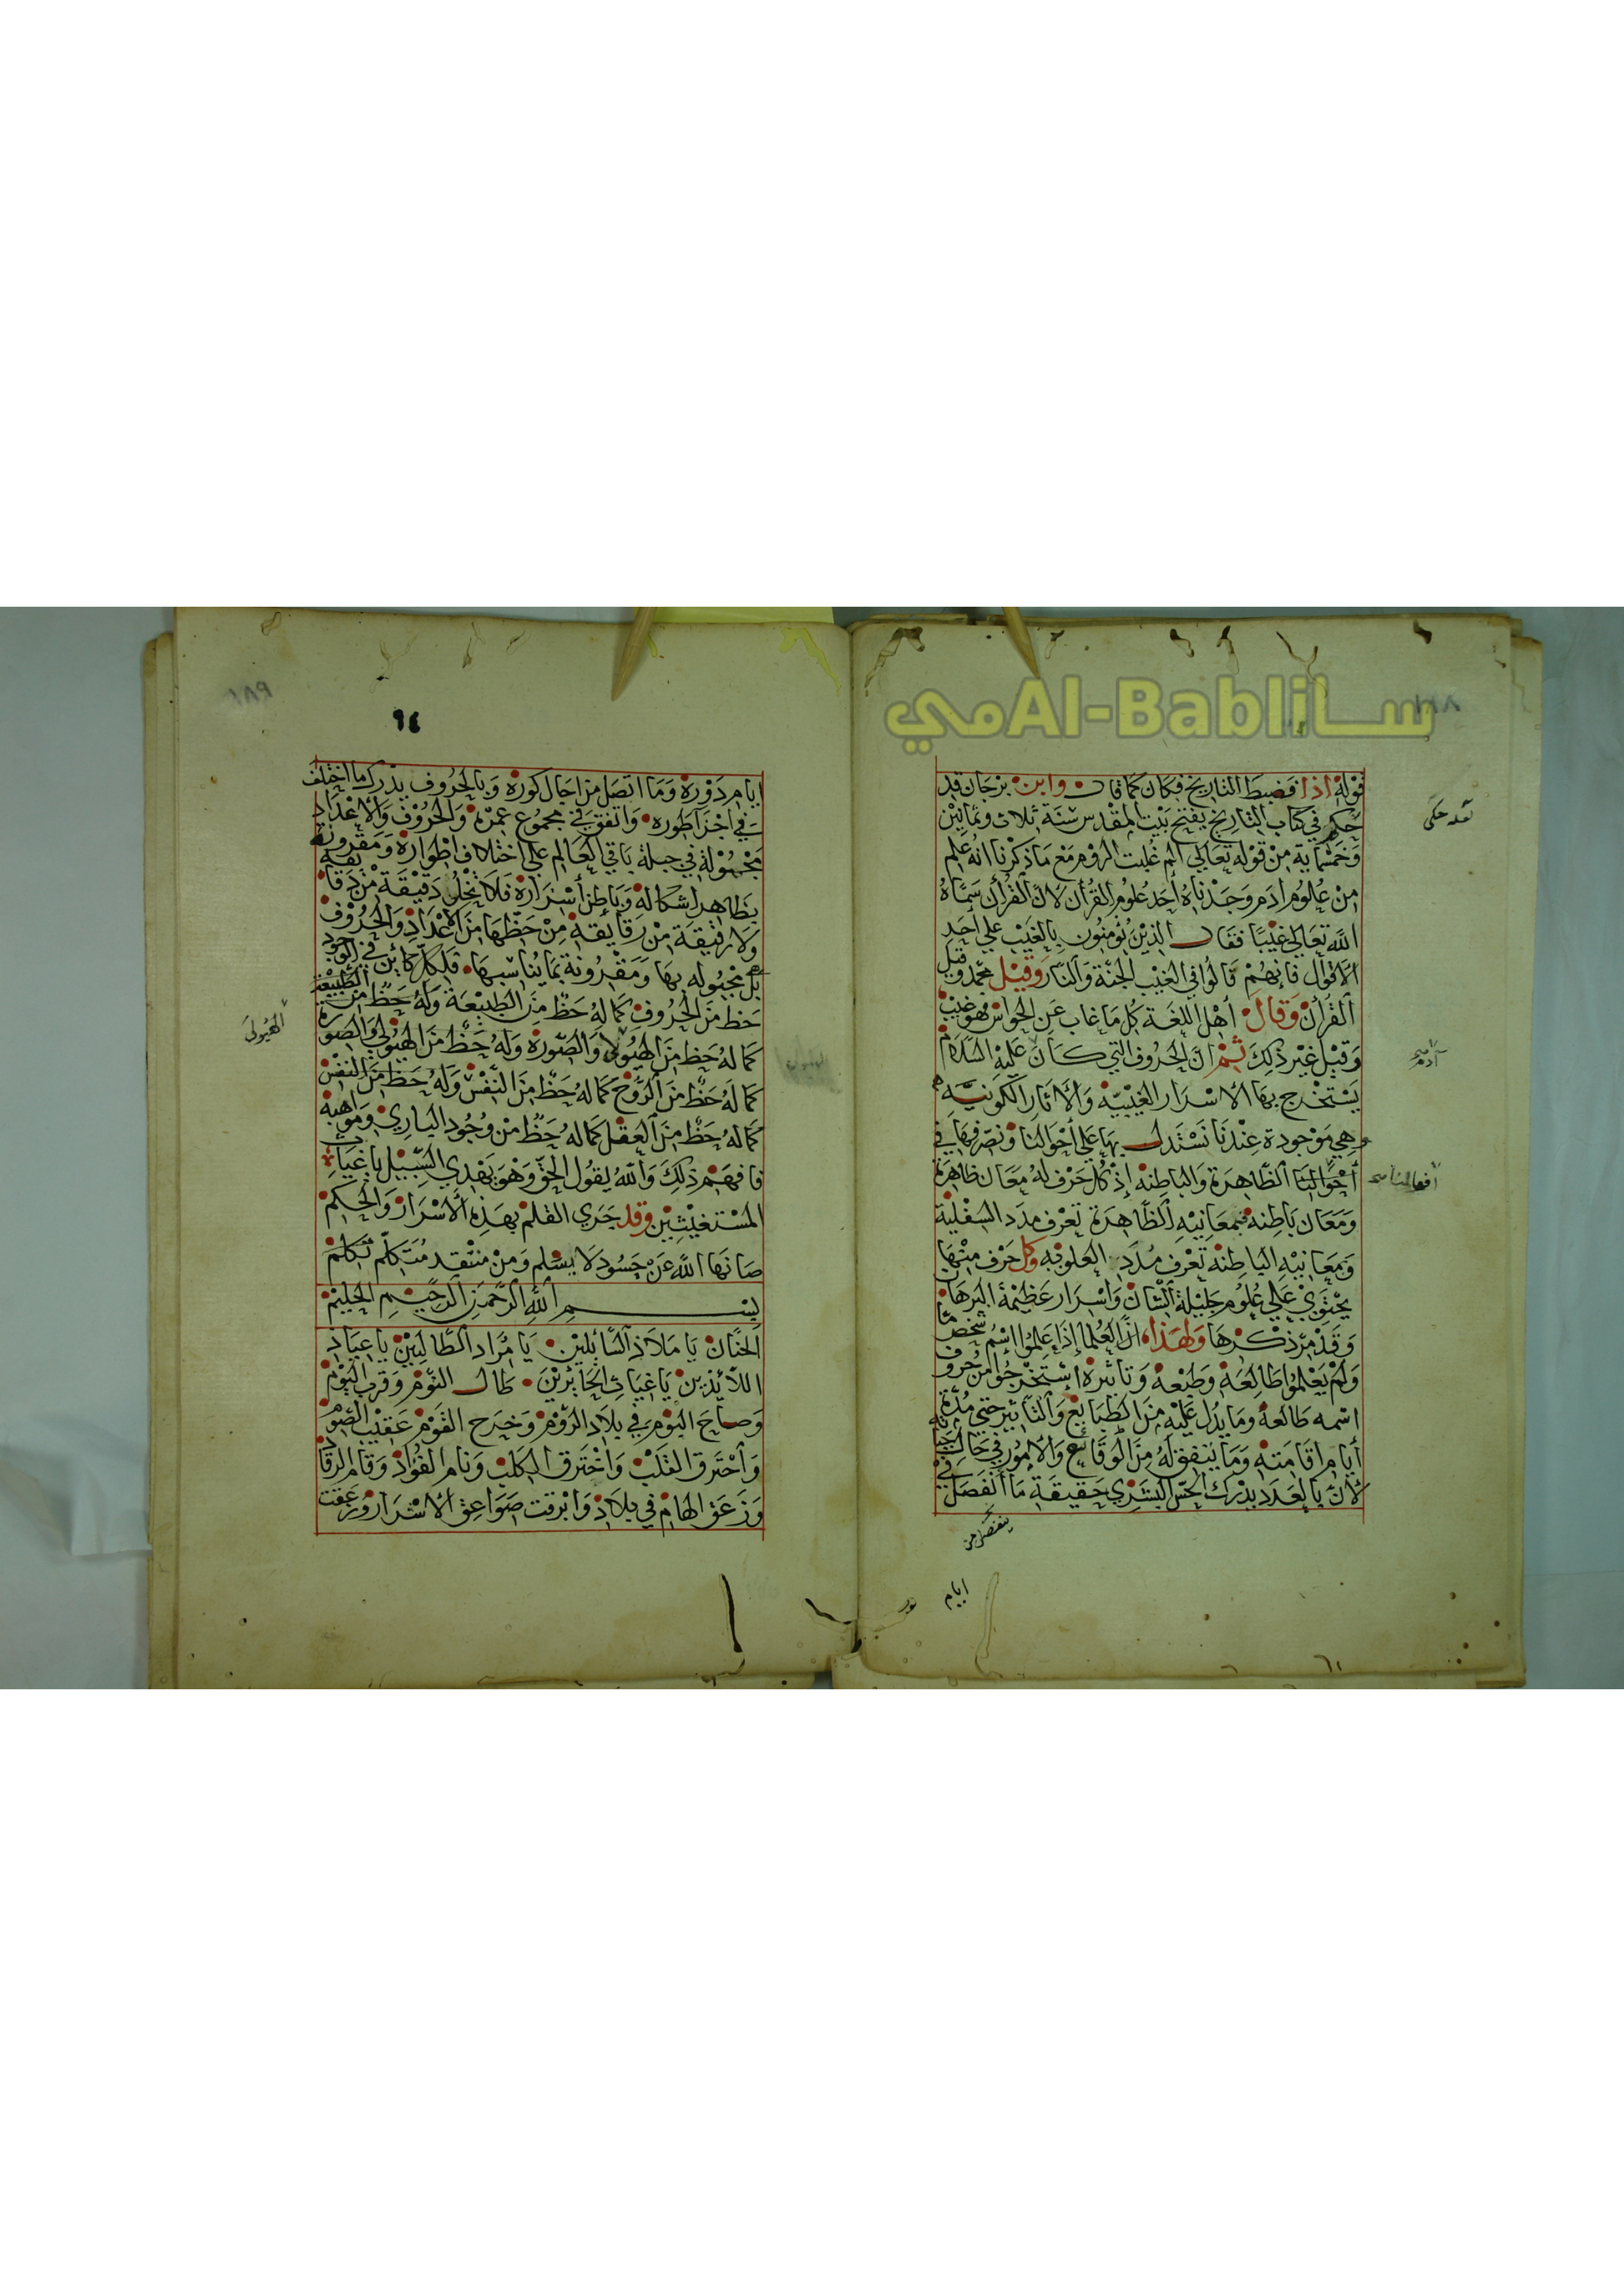 ساAl-Babliمي
قوله اذا فضبط التاريخ فكان كما قال وابن برجان قد
حكم في كتاب التاريخ بفتح بيت المقدس سنة ثلاث وثمانين
وخمسماية من قوله تعالي الم غلبت الروم مع ما ذكرنا انه علم
من علوم ادم وجدناه احد علوم القرآن لان القرآن سماه
الله تعالي غيبا فقال الذين يؤمنون بالغيب علي احد
الاقوال فانهم قالوا في الغيب الجنة والنار وقيل محمد وقيل
القرآن وقال أهل اللغة كل ما غاب عن الحواس فهو غيب
وقيل غير ذلك ثم ان الحروف التي كان عليه السلام
يستخرج بها الاسرار الغيبيه والاثار الكونيه
هي موجودة عندنا نستدل بها علي احوالنا ونصرفها في
أحوالنا الظاهرة والباطنه إذ كل حرف له معان ظاهرة
ومعان باطنه فبمعانيه الظاهرة تعرف مدد السفلية
وبمعانيه الباطنه تعرف مدد العلويه وكل حرف منها
يحتوي علي علوم جليلة الشان واسرار عظيمة البرهان
وقد مر ذكرها ولهذا ان العلما إذا علموا اسم شخص ما
ولم يعلموا طالعه وطبعه وتاثيره استخرجوا من حروف
اسمه طالعه وما يدل عليه من الطبايع والتاثير حتي مدة
أيام اقامته وما يتفق له من الوقائع والامور في حال حياته
لان بالعدد يدرك الحس البشري حقيقة ما انفصل في
ادم
ايام
٩٤
ايام دوره وما اتصل من اجال كوره وبالحروف يدرك ما اختلف
في اجزا طوره واتفق في مجموع عمره والحروف والاعداد
مجموله في جبلة باقي العالم علي اختلاف اطواره ومقرونة
بظاهر اشكاله وباطن أسراره فلا تخلو دقيقة من دقايقه
ولا رقيقة من رقايقه من حظها من الاعداد والحروف
بل مجبوله بها ومقرونة بما يناسبها فلكل كائن في الوجود
حظ من الحروف كما له حظ من الطبيعة وله حظ من الطبيعة
كما له حظ من الهيولا والصورة وله حظ من الهيولي والصورة
كما له حظ من الروح كما له حظ من النفس وله حظ من النفس
كما له حظ من العقل كما له حظ من وجود الباري ومواهبه
فافهم ذلك والله يقول الحق وهو يهدي السبيل يا غياث
المستغيثين وقد جري القلم بهذه الاسرار والحكم
صانها الله عن حسود لا يسلم ومن منتقد متكلم تكلم
بسم الله الرحمن الرحيم الحليم
الحنان يا ملاذ السائلين يا مراد الطالبين يا عياذ
اللائذين يا غياث الحائرين طال النوم وقرب اليوم
وصاح البوم في بلاد الروم وخرج القوم عقيب الصوم
واحترق القلب واخترق الكلب ونام الفؤاد وقام الرقاد
وزعق الهام في بلاد وابرقت صواعق الاشرار وزعقت
الهيولى